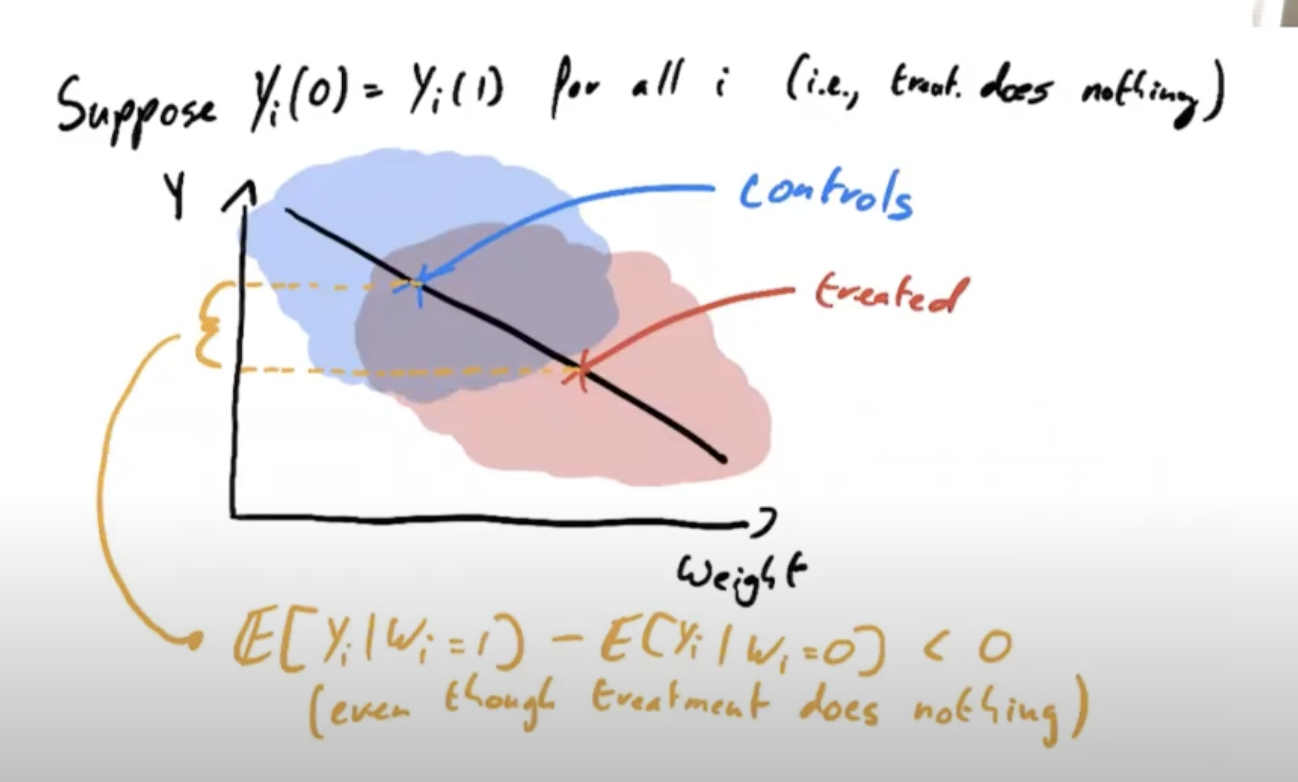 Suppose Yi(0) = Yi(1) for all i (i.e., treat. does nothing)
Y
controls
treated
Weight
E[Yi|Wi=1] - E[Yi|Wi=0] < 0
(even though treatment does nothing)